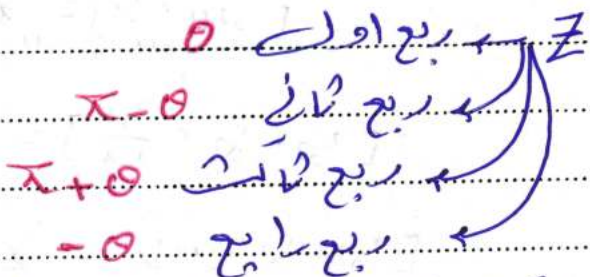 Z ← ربع اول θ
ربع ثاني π - θ
ربع ثالث π + θ
ربع رابع - θ